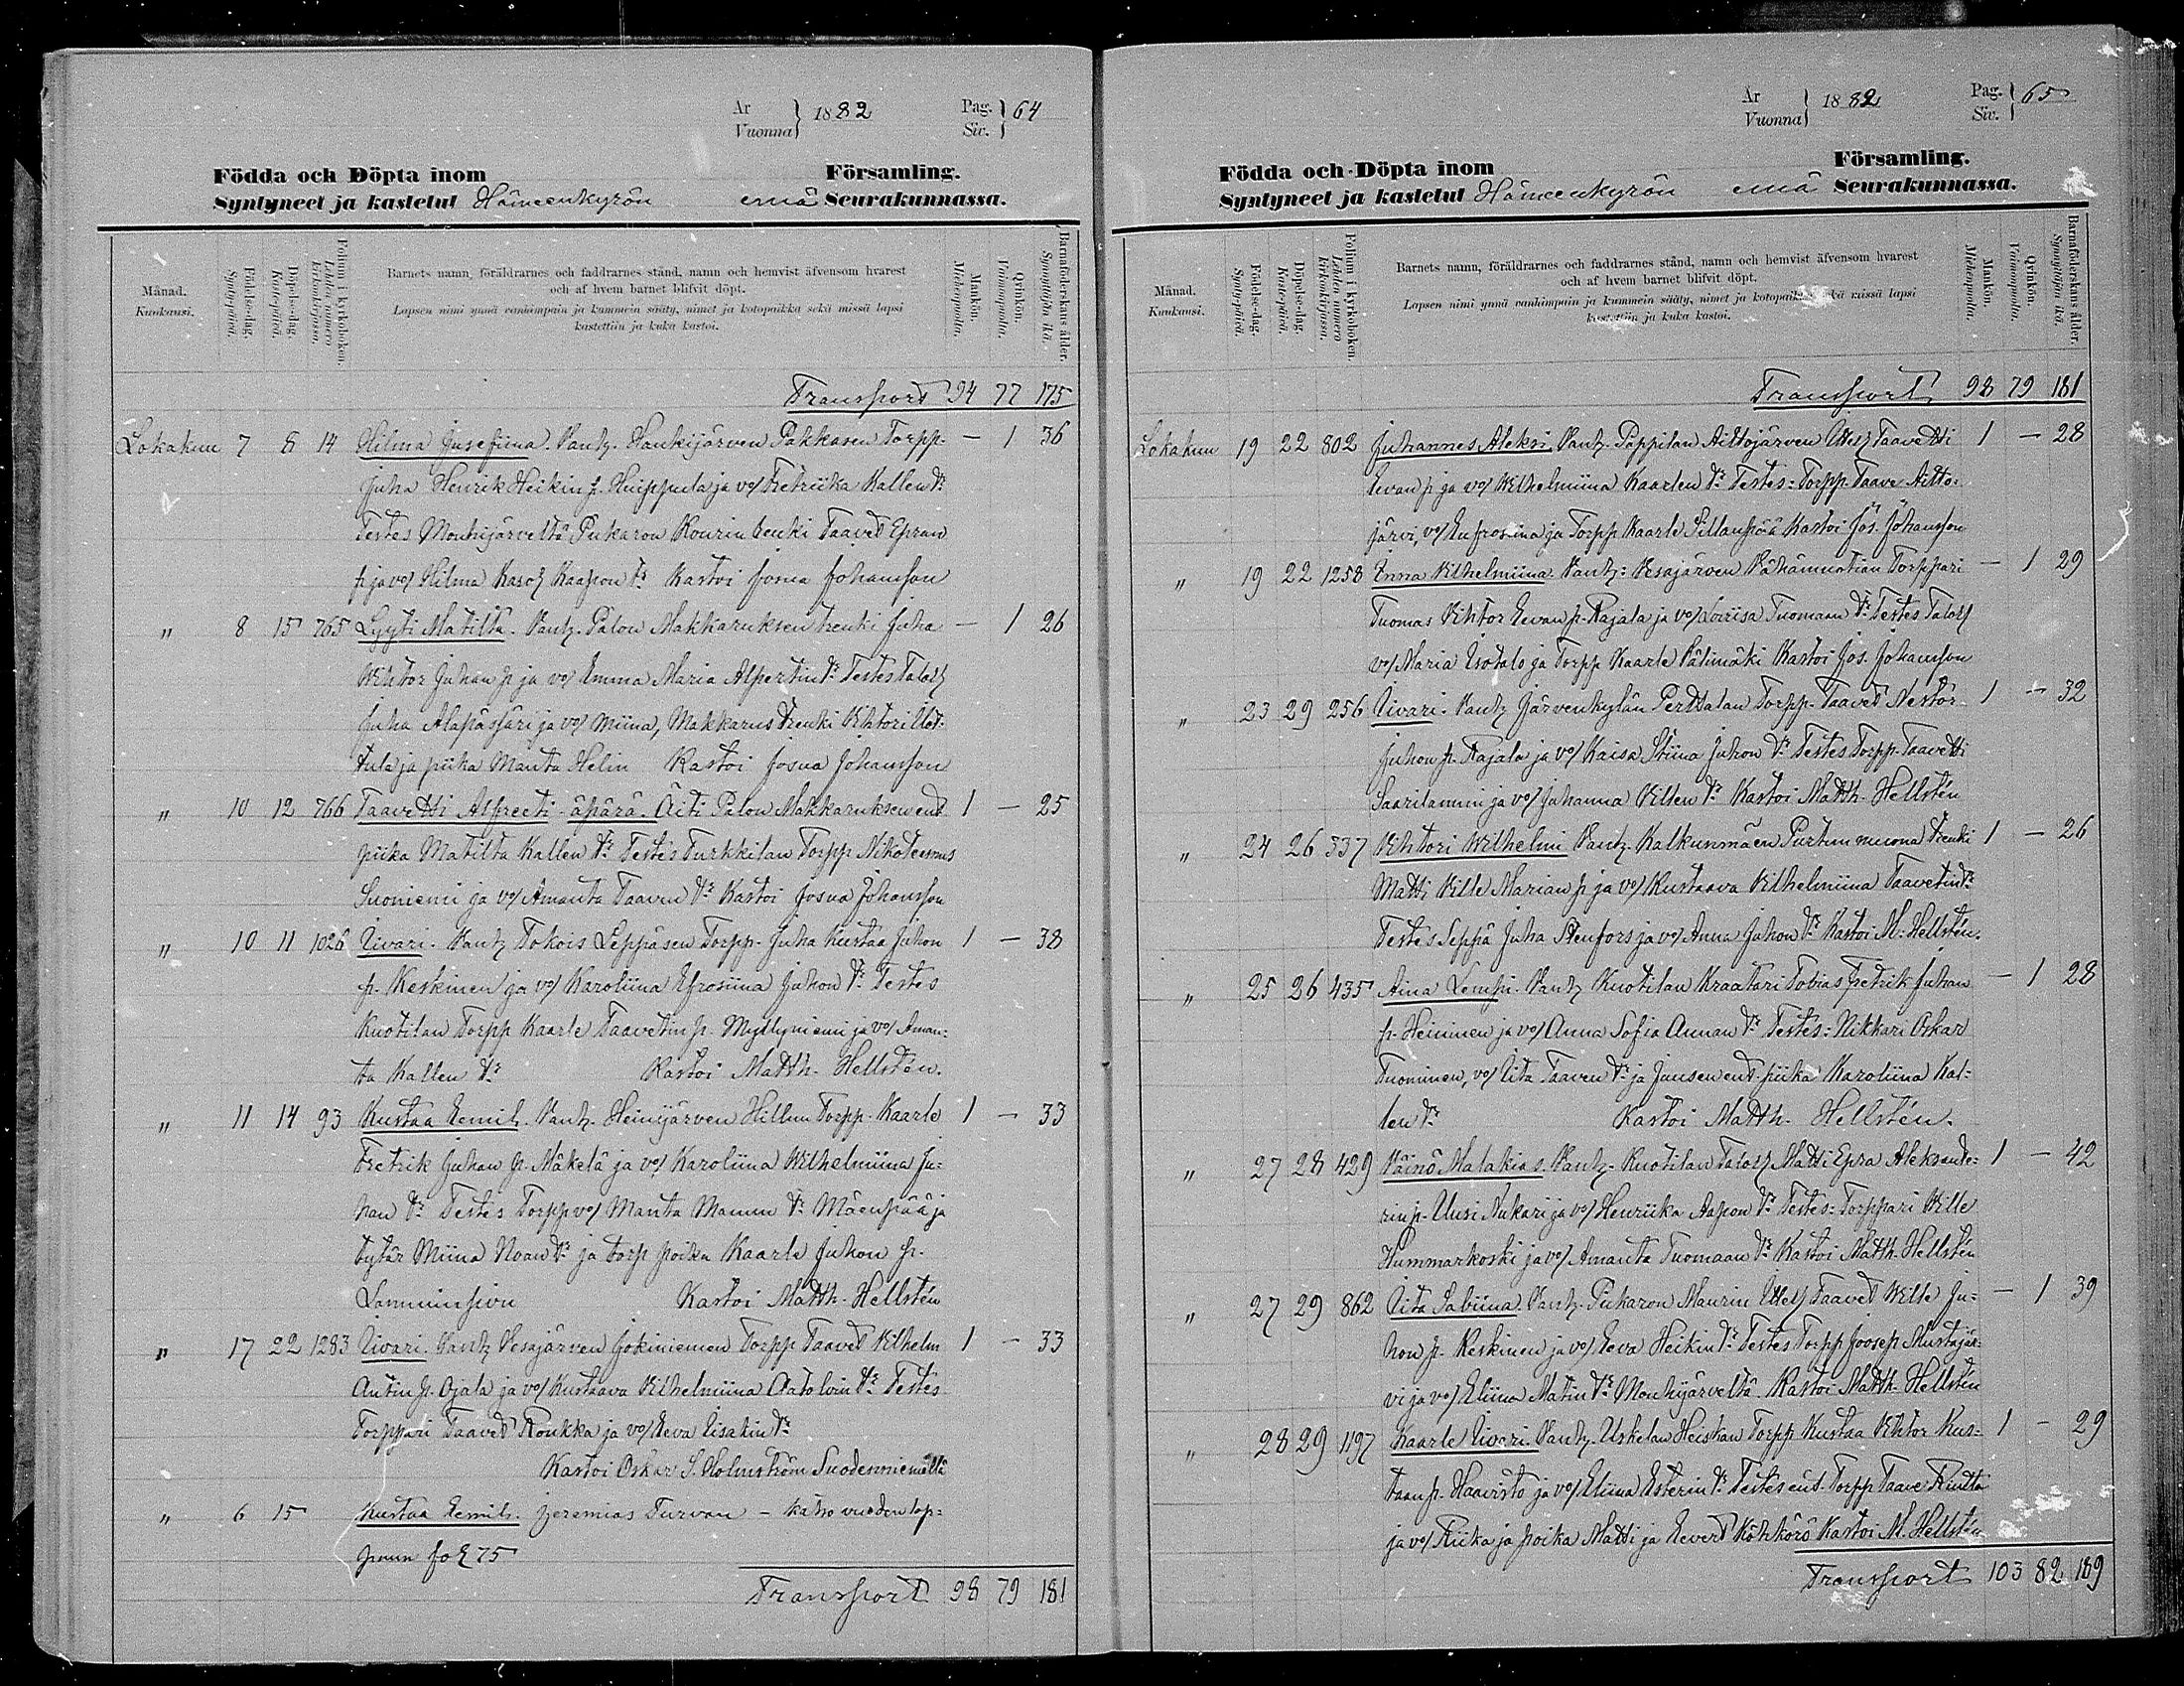 År
Vuonna } 1882 Pag.
Siv. } 64
Födda och Döpta inom Församling.
Syntyneet ja kastetut Hämeenkyrön emä Seurakunnassa.
Månad.
Kuukausi.
Födelse-dag.
Syntympäivä.
Döpelse-dag.
Kastepäivä.
Folium i kyrkoboken.
Lehden numero kirkonkirjassa.
Barnets namn, föräldrarnes och faddrarnes stånd, namn och hemvist äfvensom hvarest
och af hvem barnet blifvit döpt.
Lapsen nimi ynnä vanhimpain ja kummein sääty, nimet ja kotopaikka sekä missä lapsi
kastettiin ja kuka kastoi.
Mankön.
Miehenpuolta.
Qvinkön.
Vaimonpuolta.
Barnaföderskans ålder.
Synnyttäjän ikä.
Transport 94 77 175
Lokakuu 7 8 14 Hilma Jusefiina. Vanh. Hankijärven Pakkasen Torpp. — 1 36
Juha Henrik Heikin p. Huippula ja vo/ Fretriika Kallen tr
Testes Mouhijärveltä Pukaron Kourin renki Taavet Epran
p ja vo/ Hilma Kaapon tr Kastoi Josua Johansson
" 8 15 765 Lyyti Matilta. Vanh. Palon Makkaruksen trenki Juha — 1 26
Wihtor Juhan p ja vo/ Emma Maria Alpertin tr Testes
Juha Alapässäri ja vo/ Miina, Makkarus trenki Vihtori
tula ja piika Manta Helin Kastoi Josua Johansson
" 10 12 766 Taavetti Alfreeti - äpärä. Äiti Palon Makkaruksen ent 1 — 25
piika Matilta Kallen tr Testes Turkkilan Torpp Nikoteemus
Suoniemi ja vo/ Amanta Taaven tr Kastoi Josua Johansson
" 10 11 1026 Iivari. Vanh Tokois Leppäsen Torpp. Juha Kustaa Juhon 1 — 38
p. Keskinen ja vo/ Karoliina Efrosiina Juhon tr Testes
Kuotilan Torpp Kaarle Taavetin p. Myllyniemi ja vo/ Aman=
ta Kallen tr Kastoi Matth. Hellstén.
" 11 14 93 Kustaa Eemil. Vanh. Heinijärven Hillun Torpp. Kaarle 1 — 33
Fretrik Juhan p. Mäkelä ja vo/ Karoliina Wilhelmiina Ju=
han tr Testes Torpp vo/ Manta Manun tr Mäenpää ja
tytär Miina Noan tr ja torp poika Kaarle Juhon p.
Kastoi Matth. Hellstén
" 17 22 1283 Iivari. Vanh Vesajärven Jokiniemen Torpp Taavet Vilhelm 1 — 33
Antin p. Ojala ja vo/ Kustaava Vilhelmiina Aatolvin tr Testes
Torppari Taavet Roukka ja vo/ Eeva Iisakin tr
Kastoi Oskar S. Holmström Suodenniemellä
" 6 15 Kustaa Eemil. Jeremias Turvan — katso vuoden lop=
puun fol 75
Transport 98 79 181
År
Vuonna } 1882 Pag.
Siv. } 65
Födda och Döpta inom Församling.
Syntyneet ja kastetut Hämeenkyrön emä Seurakunnassa.
Månad.
Kuukausi.
Födelse-dag.
Syntympäivä.
Döpelse-dag.
Kastepäivä.
Folium i kyrkoboken.
Lehden numero kirkonkirjassa.
Barnets namn, föräldrarnes och faddrarnes stånd, namn och hemvist äfvensom hvarest
och af hvem barnet blifvit döpt.
Lapsen nimi ynnä vanhimpain ja kummein sääty, nimet ja kotopaikka sekä missä lapsi
kastettiin ja kuka kastoi.
Mankön.
Miehenpuolta.
Qvinkön.
Vaimonpuolta.
Barnaföderskans ålder.
Synnyttäjän ikä.
Transport 98 79 181
Lokakuu 19 22 802 Juhannes Aleksi. Vanh. Pappilan Aittojärven Taavetti 1 — 28
Eevan p ja vo/ Wilhelmiina Kaarlen tr Testes: Torpp. Taave Aitto=
järvi, vo/ Eufrosina ja Torpp Kaarle Sillanpää Kastoi Jos. Johansson
" 19 22 1258 Enna Vilhelmiina. Vanh: Vesajärven Vähämuotian Torppari — 1 29
Tuomas Vihtor Eevan p. Rajala ja vo/ Loviisa Tuomaan tr Testes
vo/ Maria Isotalo ja Torpp Kaarle Välimäki Kastoi Jos. Johansson
" 23 29 256 Iivari. Vanh Järvenkylän Perttalan Torpp. Taavet Nestor 1 — 32
Juhon p. Rajala ja vo/ Kaisa Stiina Juhon tr Testes Torpp. Taavetti
Saarilammi ja vo/ Johanna Villen tr Kastoi Matth. Hellstén
" 24 26 537 Vihtori Wilhelmi Vanh. Kalkunmäen Purtun muona trenki 1 — 26
Matti Ville Marian p ja vo/ Kustaava Vilhelmiina Taavetin tr
Testes Seppä Juha Stenfors ja vo/ Anna Juhon tr Kastoi M. Hellstén.
" 25 26 435 Aina Lempi. Vanh Kuotilan Kraatari Tobias Fretrik Juhan — 1 28
p. Heininen ja vo/ Anna Sofia Annan tr Testes: Nikkari Oskar
Tuominen, vo/ Iita Taaven tr ja Jausen ent. piika Karoliina Kal=
len tr Kastoi Matth. Hellstén.
" 27 28 429 Väinö Malakias. Vanh. Kuotilan Matti Epra Aleksante= 1 — 42
rin p. Uusi Nukari ja vo/ Henriika Aapon tr Testes: Torppari Wille
Hummarkoski ja vo/ Amanta Tuomaan tr Kastoi Matth. Hellstén
" 27 29 862 Iita Sabiina. Vanh. Pukaron Maurin Taavet Wille Ju= — 1 39
hon p. Keskinen ja vo/ Eeva Heikin tr Testes Torpp Joosep Mustajär=
vi ja vo/ Eliina Matin tr Mouhijärveltä. Kastoi Matth. Hellstén
" 28 29 1197 Kaarle Iivari. Vanh. Uskelan Heiskan Torpp Kustaa Vihtor Kus= 1 — 29
taan p. Haavisto ja vo/ Eliina Esterin tr Testes ent. Torpp Taave
ja vo/ Riika ja poika Matti ja Eevert Köhkörö Kastoi M. Hellstén
Transport 103 82 189